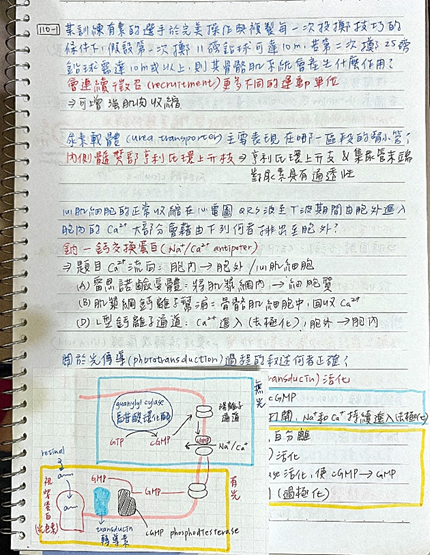 110-1
某訓練有素的選手於完美操作與複製每一次投擲技巧的
條件下，假設第一次擲11磅鉛球可達10m，若第二次擲25磅
鉛球需達10m或以上，則其骨骼肌系統會發生什麼作用？
需連續徵召(recruitment)更多不同的運動單位
⇒可增強肌肉收縮
尿素載體(urea transporter)主要表現在哪一區段的腎小管？
內側髓質部亨利氏環上升枝 → 亨利氏環上升支 & 集尿管末端
對尿素具有通透性
心肌細胞的正常收縮在心電圖QRS波至T波期間由胞外進入
胞內的Ca²⁺大部分會藉由下列何者排出至胞外？
鈉-鈣交換蛋白(Na⁺/Ca²⁺ antiporter)
⇒題目Ca²⁺流向：胞內→胞外/心肌細胞
(A)雷恩諾鹼受體：將肌漿網內→細胞質
(B)肌漿網鈣離子幫浦：骨骼肌細胞中，回收Ca²⁺
(D)L型鈣離子通道：Ca²⁺進入(去極化)，胞外→胞內
關於光傳導(phototransduction)過程的敘述何者正確？
無光
guanylyl cylase
鳥苷酸環化酶
GTP
cGMP
陽離子通道
Na⁺/Ca²⁺
transducin)活化
cGMP
打開，Na⁺和Ca²⁺持續進入(去極化)
活化
ase活化，使cGMP→GMP
(過極化)
retinal
視紫蛋白
GMP
GMP
有光
transducin
轉導素
cGMP phosphodiesterase